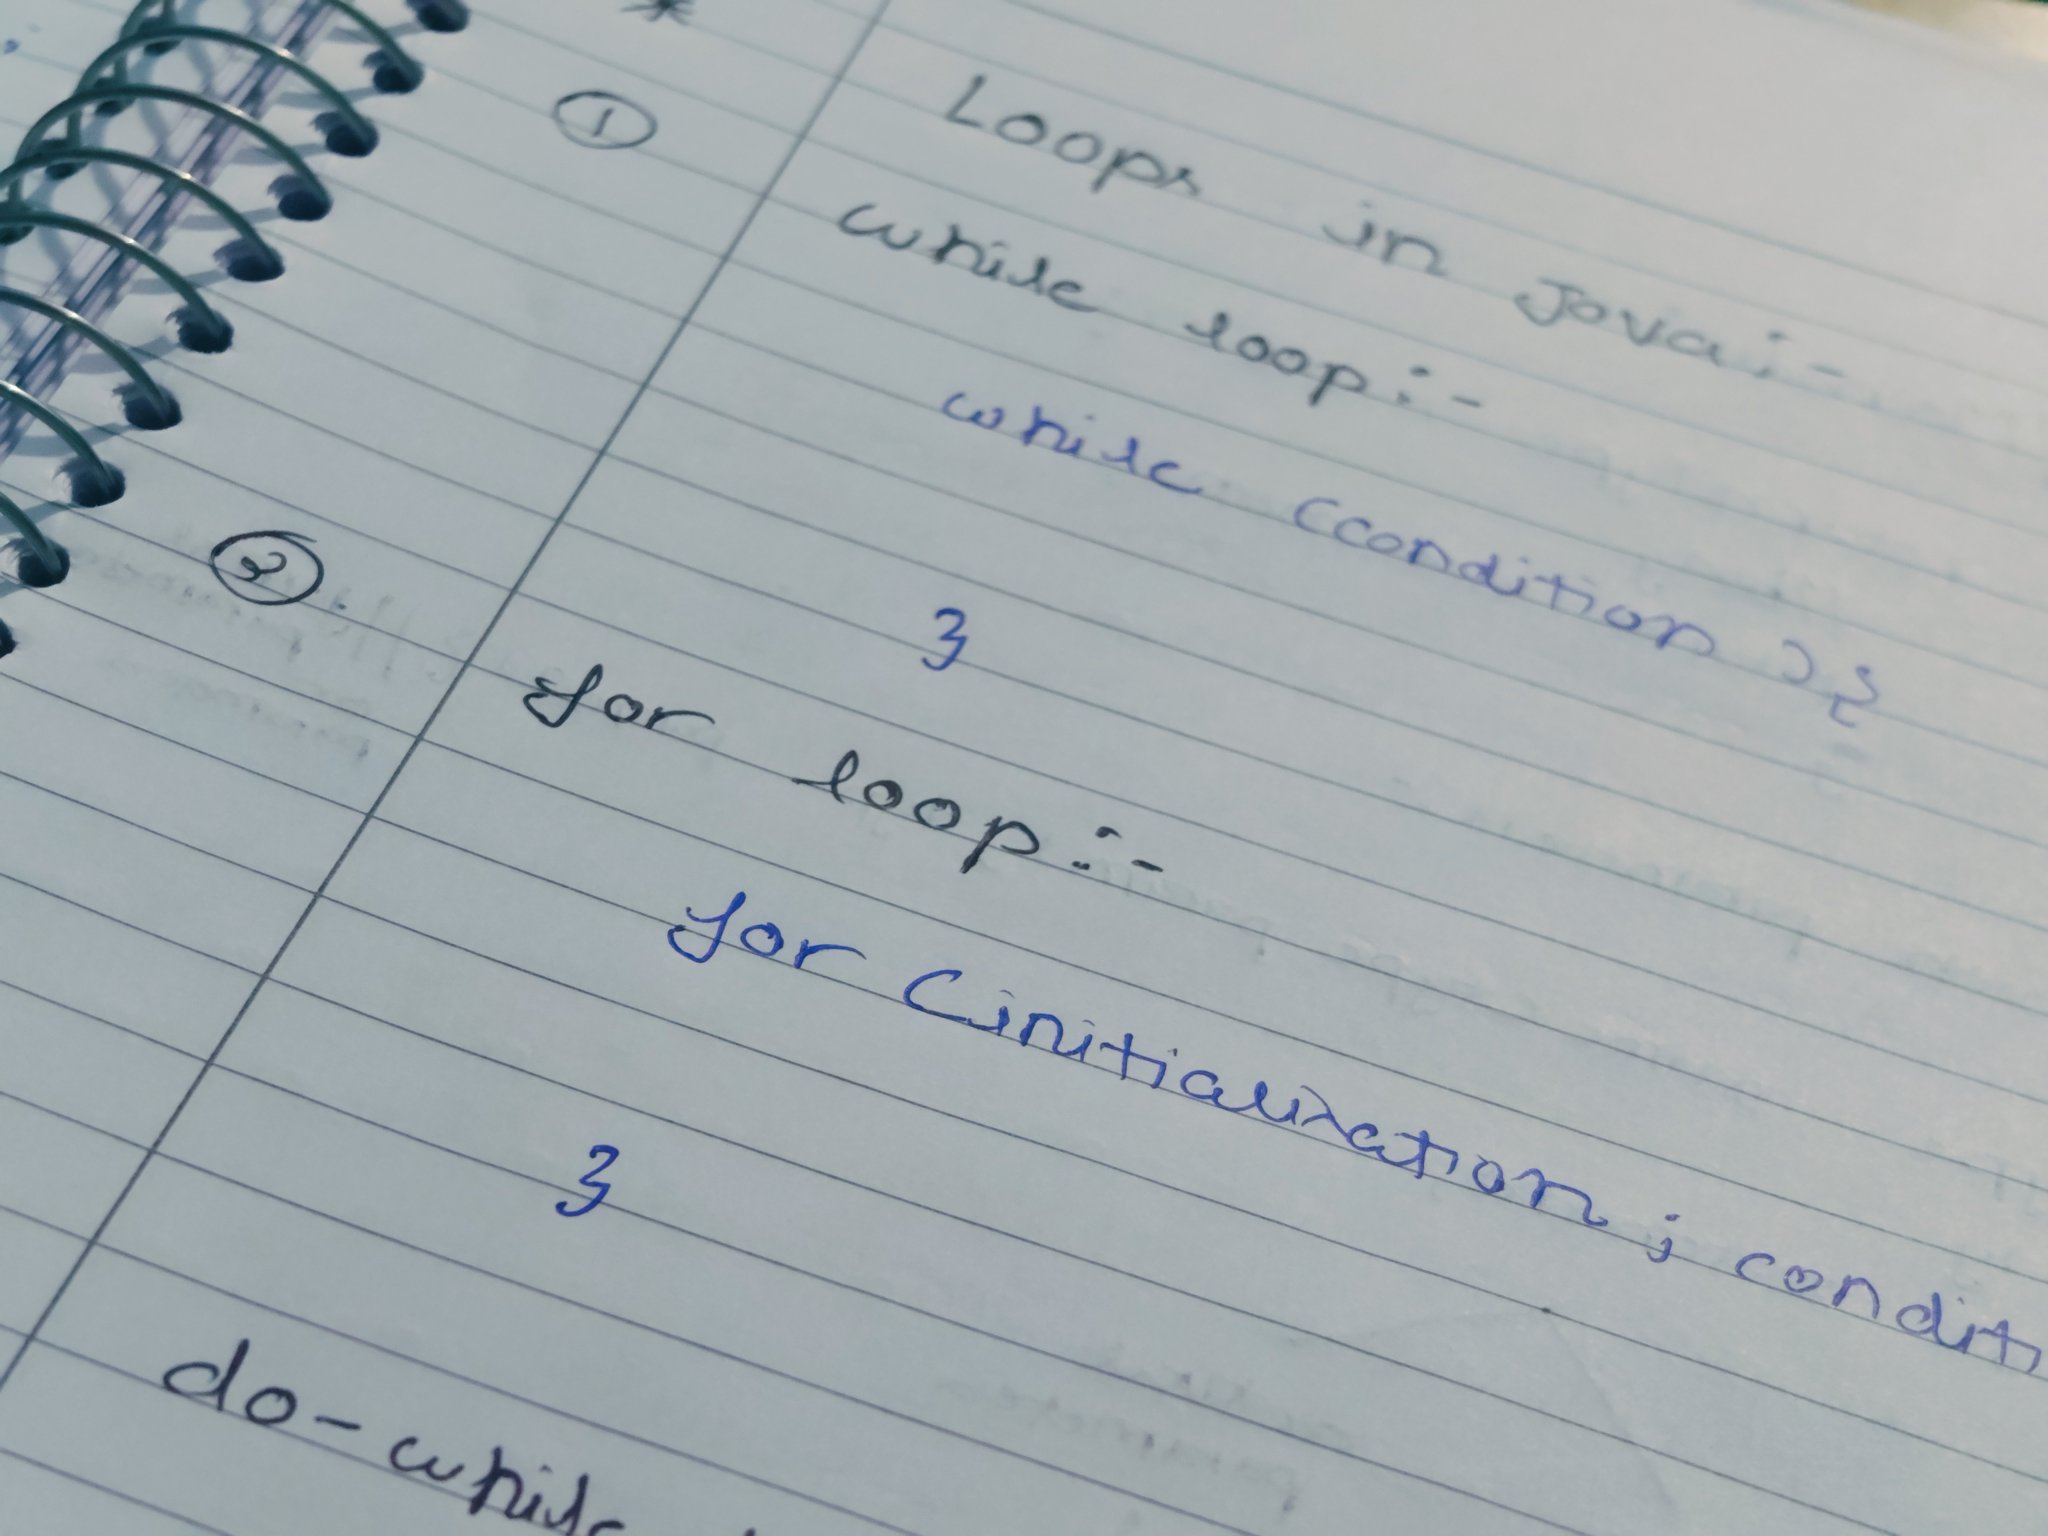 *
Loops in Java :-
① while loop :-
while (condition) {
}
② for loop :-
for (initialization ; condit
}
do-while